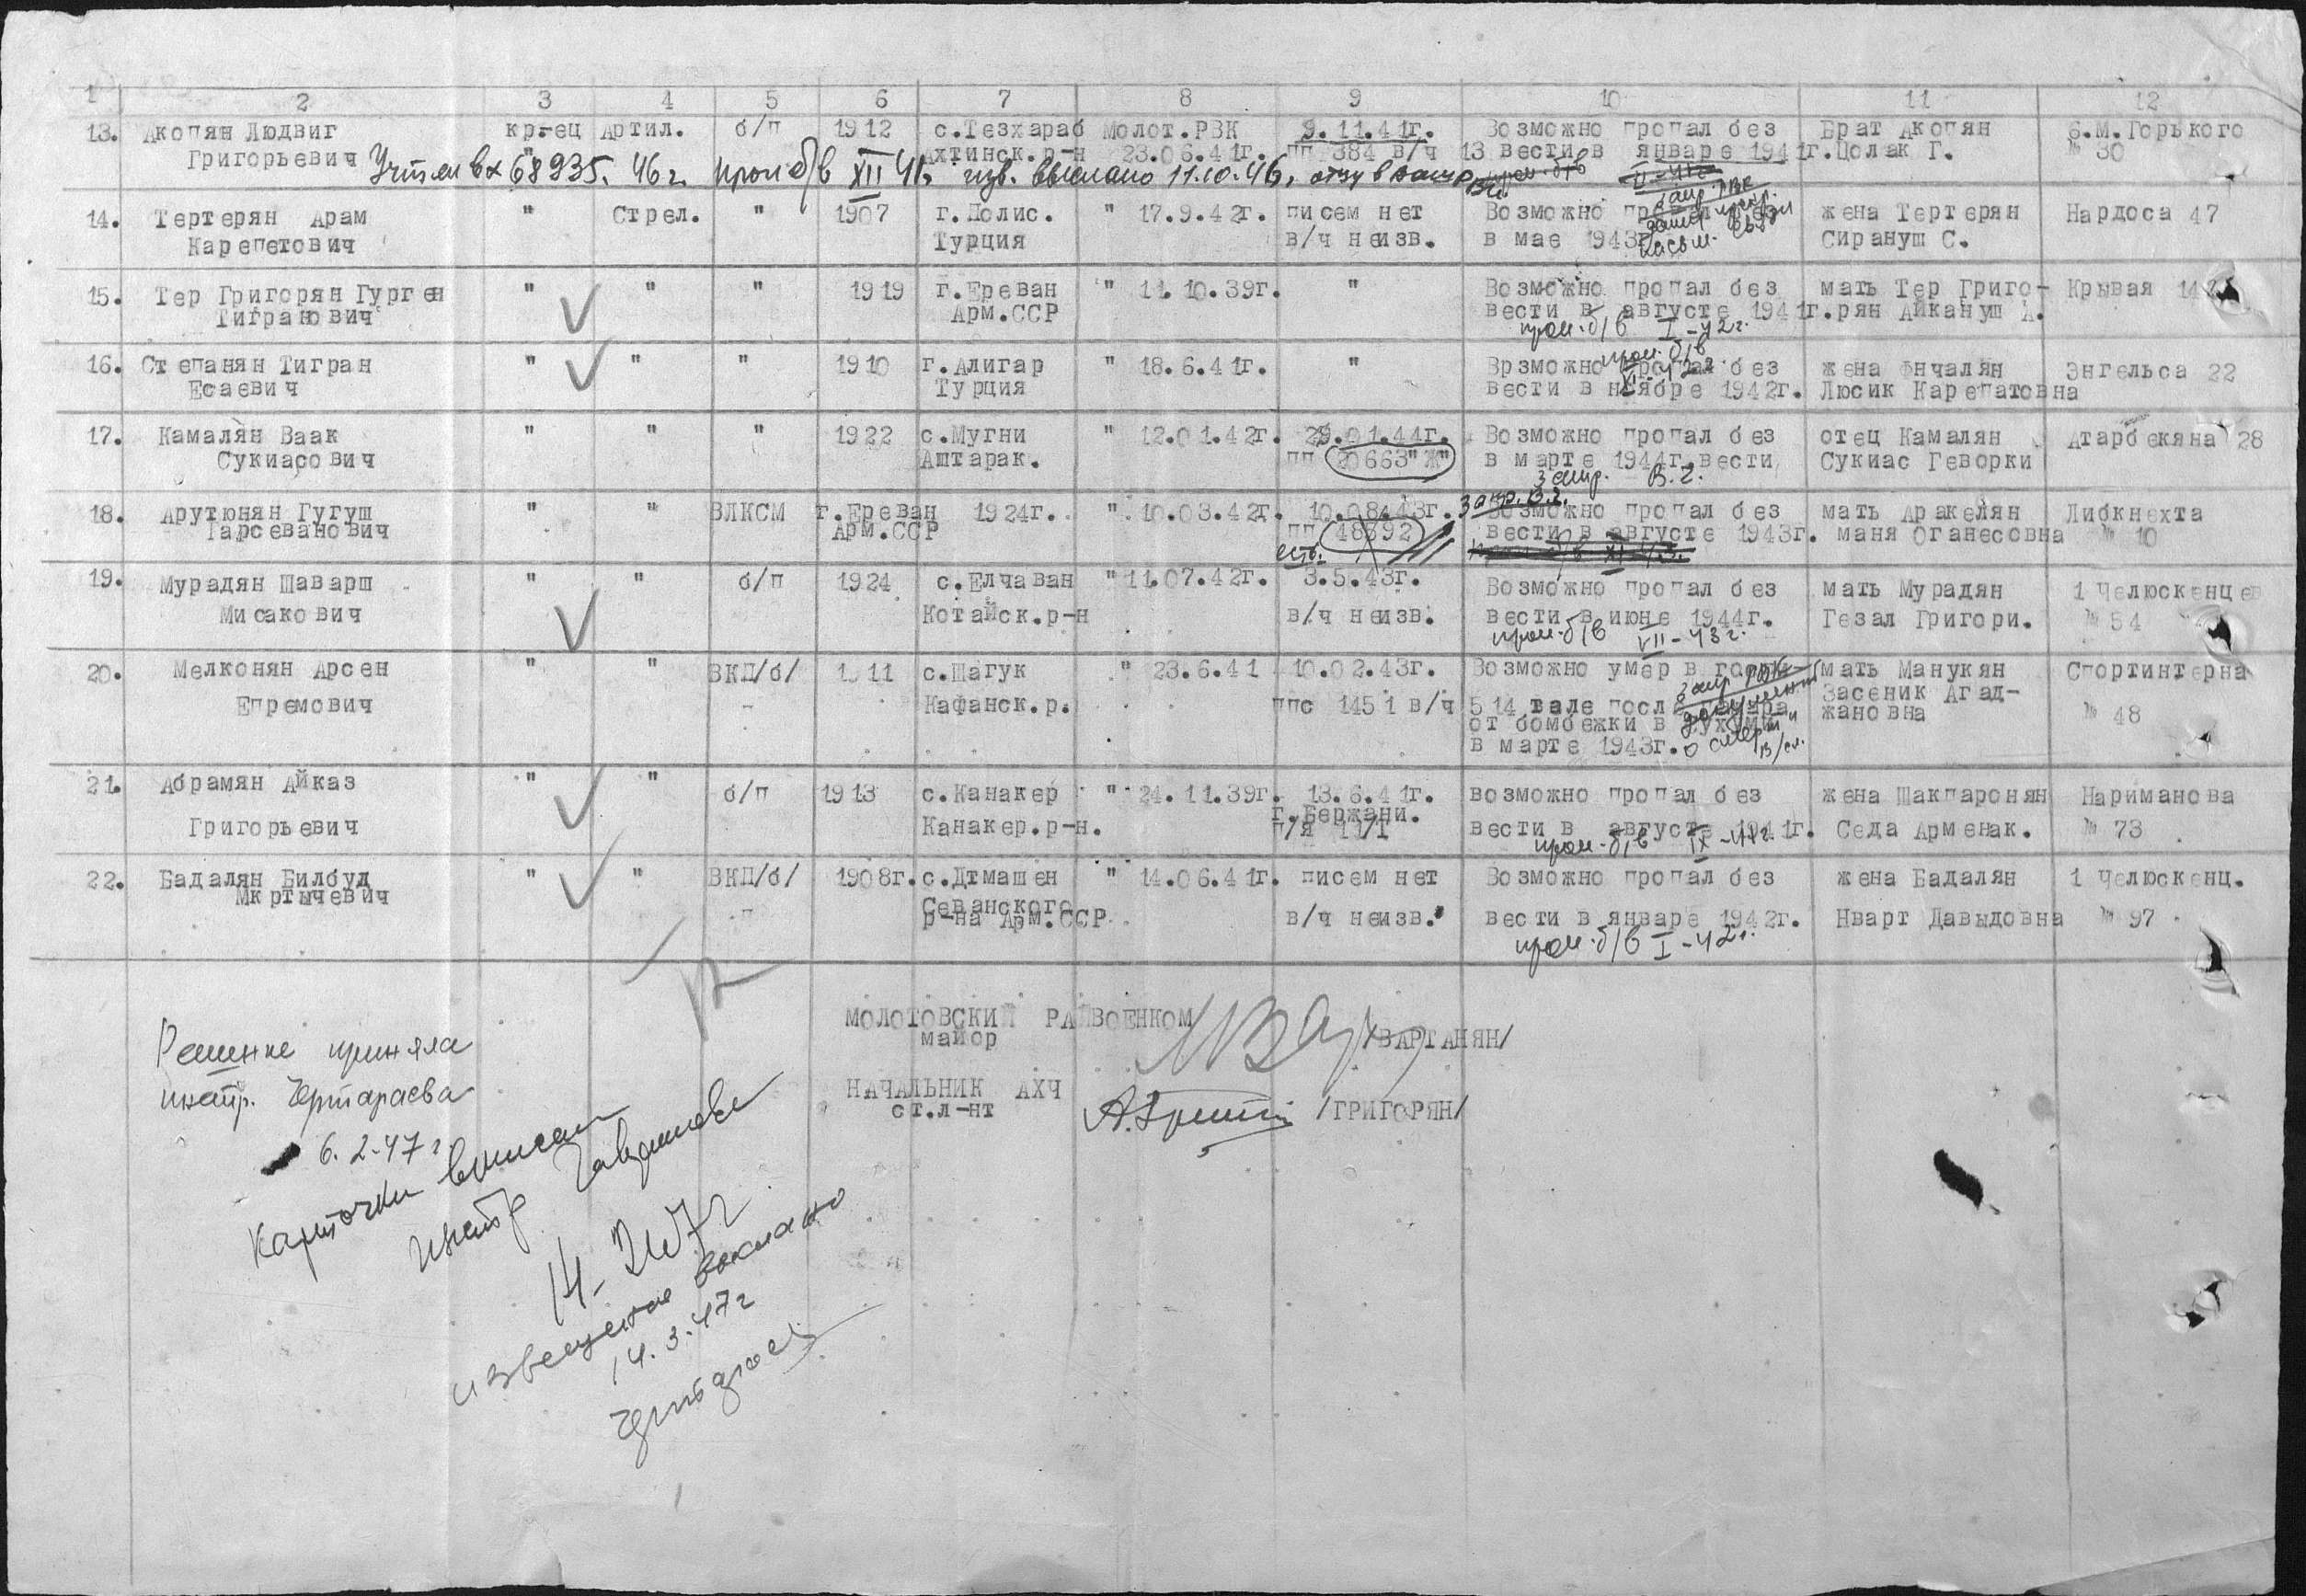 1 2 3 4 5 6 7 8 9 10 11 12
13. Акопян Людвиг кр-ец Артил. б/п 1912 с.Тезхараб Молот.РВК 9.11.41г. Возможно пропал без Брат Акопян 6.М.Горького
Григорьевич " Ахтинск.р-н 23.06.41г. пп 384 в/ч 13 вести в январе 1941г. Цолак Г. № 30
Учтен вх 68935. 46г. проп б/в XII 41г. изв. выслано 11.10.46г.
14. Тертерян Арам " Стрел. " 1907 г.Полис. " 17.9.42г. писем нет Возможно жена Тертерян Нардоса 47
Карепетович Турция в/ч неизв. в мае 1943г Сирануш С.
15. Тер Григорян Гурген " " " 1919 г.Ереван " 11.10.39г. " Возможно пропал без мать Тер Григо- Крывая
Тигранович Арм.ССР вести в августе 1941г. рян Айкануш А.
проп. б/в I-42г.
16. Степанян Тигран " " " 1910 г.Алигар " 18.6.41г. " Врзможно пропал без жена Фнчалян Энгельса 22
проп. б/в
Есаевич Турция вести в ноябре 1942г. Люсик Карепатовна
17. Камалян Ваак " " " 1922 с.Мугни " 12.01.42г. 29.01.44г. Возможно пропал без отец Камалян Атарбекяна 28
Сукиасович Аштарак. пп 20663"Ж" в марте 1944г.вести Сукиас Геворки
запр. В.г.
18. Арутюнян Гугуш " " ВЛКСМ г.Ереван 1924г. " 10.03.42г. 10.08.43г. Возможно пропал без мать Аракелян Либкнехта
Гарсеванович Арм.ССР пп 48392 вести в августе 1943г. маня Оганесовна № 10
19. Мурадян Шаварш " " б/п 1924 с.Елчаван " 11.07.42г. 3.5.43г. Возможно пропал без мать Мурадян 1 Челюскенцев
Мисакович Котайск.р-н в/ч неизв. вести в июне 1944г. Гезал Григори. № 54
проп. б/в VII-43г.
20. Мелконян Арсен " " ВКП/б/ 1911 с.Шагук " 23.6.41 10.02.43г. Возможно умер в мать Манукян Спортинтерна
Епремович Кафанск.р. ппс 1451 в/ч 514 вале после Засеник Агад- № 48
от бомбежки в жановна
в марте 1943г.
21. Абрамян Айказ " " б/п 1913 с.Канакер " 24.11.39г. 13.6.41г. возможно пропал без жена Шакпаронян Нариманова
г.Бержани.
Григорьевич Канакер.р-н. п/я 11/1 вести в августе 1941г. Седа Арменак. № 73
проп. б/в IX-41г.
22. Бадалян Билбуд " " ВКП/б/ 1908г. с.Дтмашен " 14.06.41г. писем нет Возможно пропал без жена Бадалян 1 Челюскенц.
Мкртычевич Севанского
р-на Арм.ССР в/ч неизв. вести в январе 1942г. Нварт Давыдовна № 97
проп. б/в I-42г.
МОЛОТОВСКИЙ РАЙВОЕНКОМ
майор /ВАРТАНЯН/
НАЧАЛЬНИК АХЧ
ст.л-нт /ГРИГОРЯН/
Решение приняла
6.2.47г
Карточки
извещение выслано
14.3.47г